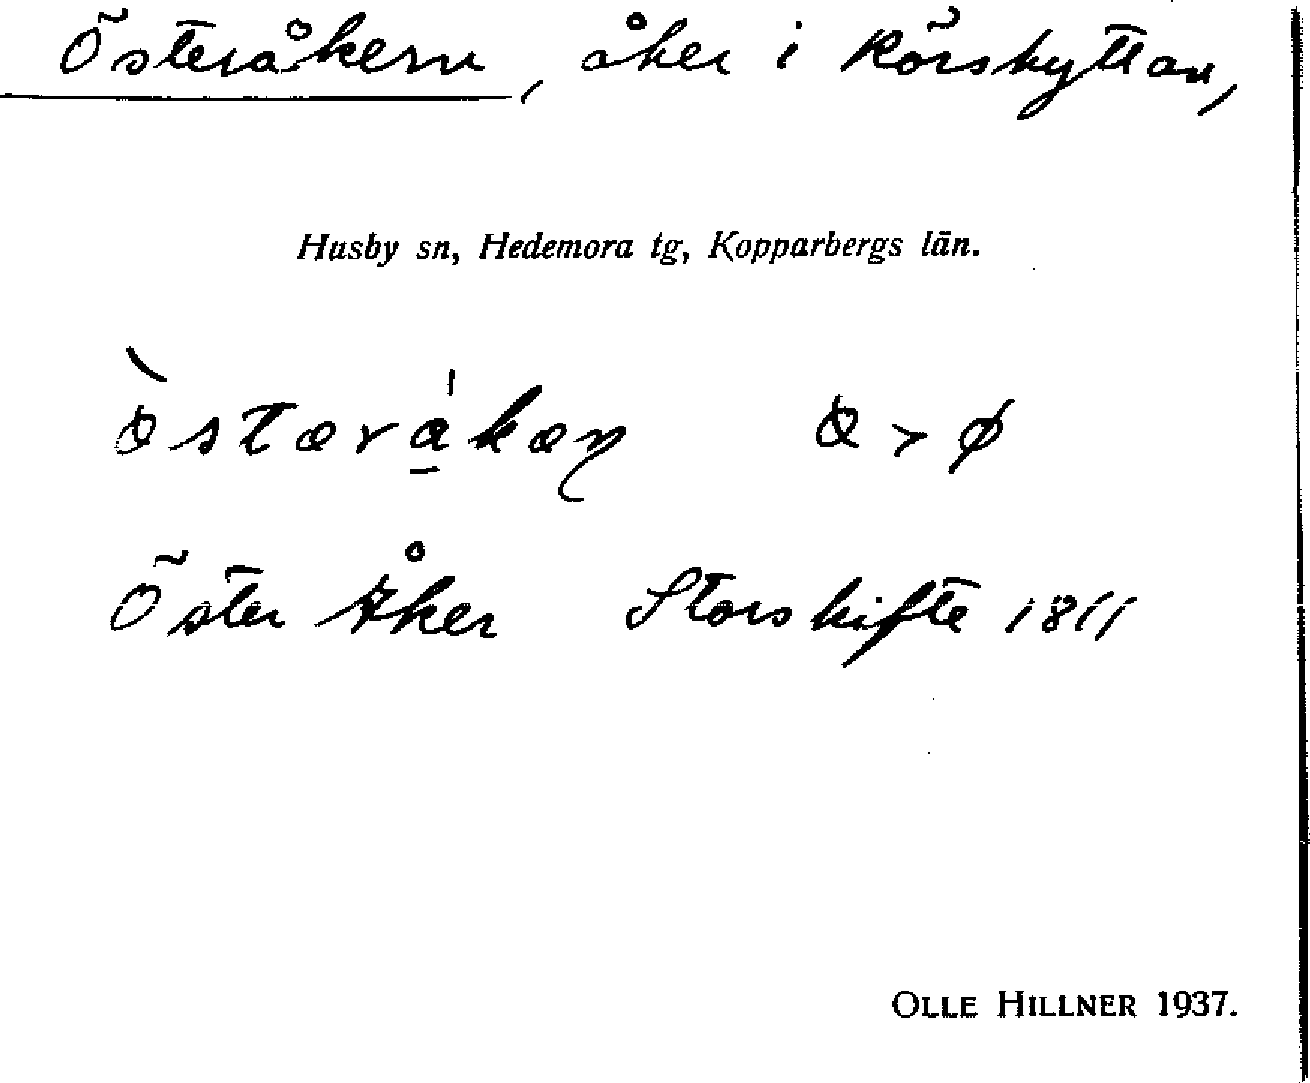 Österåkern, åker i Rörshyttan,
Husby sn, Hedemora tg, Kopparbergs län.
Öster Åker Storskifte 1811
OLLE HILLNER 1937.